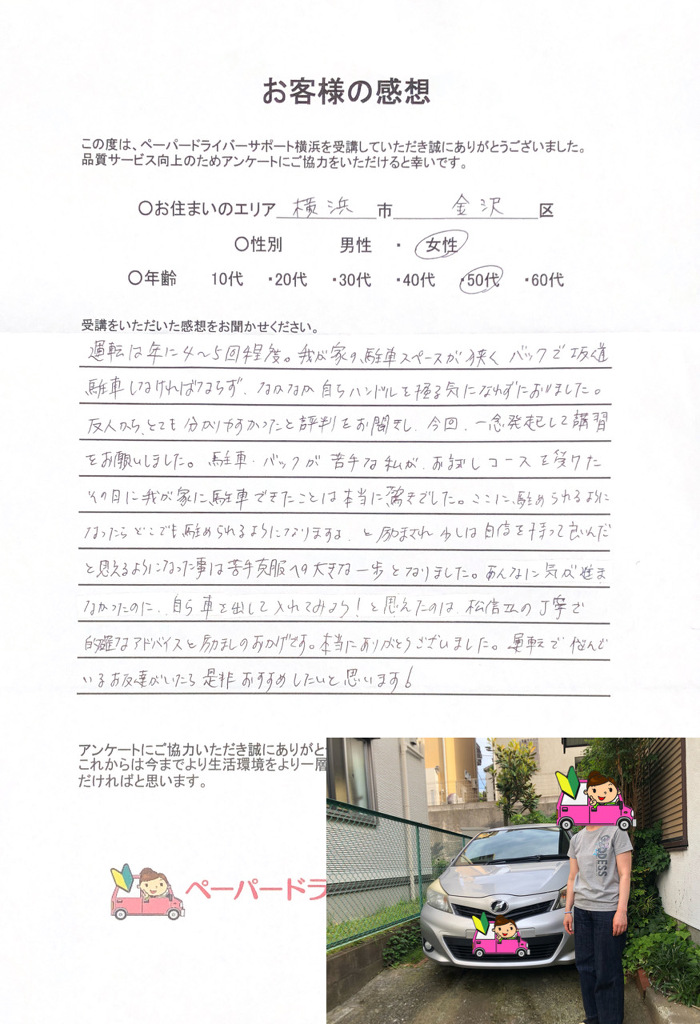 お客様の感想
この度は、ペーパードライバーサポート横浜を受講していただき誠にありがとうございました。
品質サービス向上のためアンケートにご協力をいただけると幸いです。
〇お住まいのエリア 横浜 市 金沢 区
〇性別 男性 ・ 女性
〇年齢 10代 ・20代 ・30代 ・40代 ・50代 ・60代
受講をいただいた感想をお聞かせください。
運転は年に4〜5回程度。我が家の駐車スペースが狭く バックで坂道
駐車しなければならず、なかなか自らハンドルを握る気になれずにおりました。
友人から、とても分かりやすかったと評判をお聞きし、今回、一念発起して講習
をお願いしました。駐車・バックが苦手な私が、お試しコースを受けた
その日に我が家に駐車できたことは本当に驚きでした。ここに駐められるように
なったらどこでも駐められるようになりますよ、と励まされ 少しは自信を持って良いんだ
と思えるようになった事は苦手克服への大きな一歩となりました。あんなに気が進ま
なかったのに、自ら車を出して入れてみよう！と思えたのは、松信さんの丁寧で
的確なアドバイスと励ましのおかげです。本当にありがとうございました。運転で悩んで
いるお友達がいたら是非おすすめしたいと思います！
アンケートにご協力いただき誠にありがと
これからは今までより生活環境をより一層
だければと思います。
ペーパードラ
GODDESS